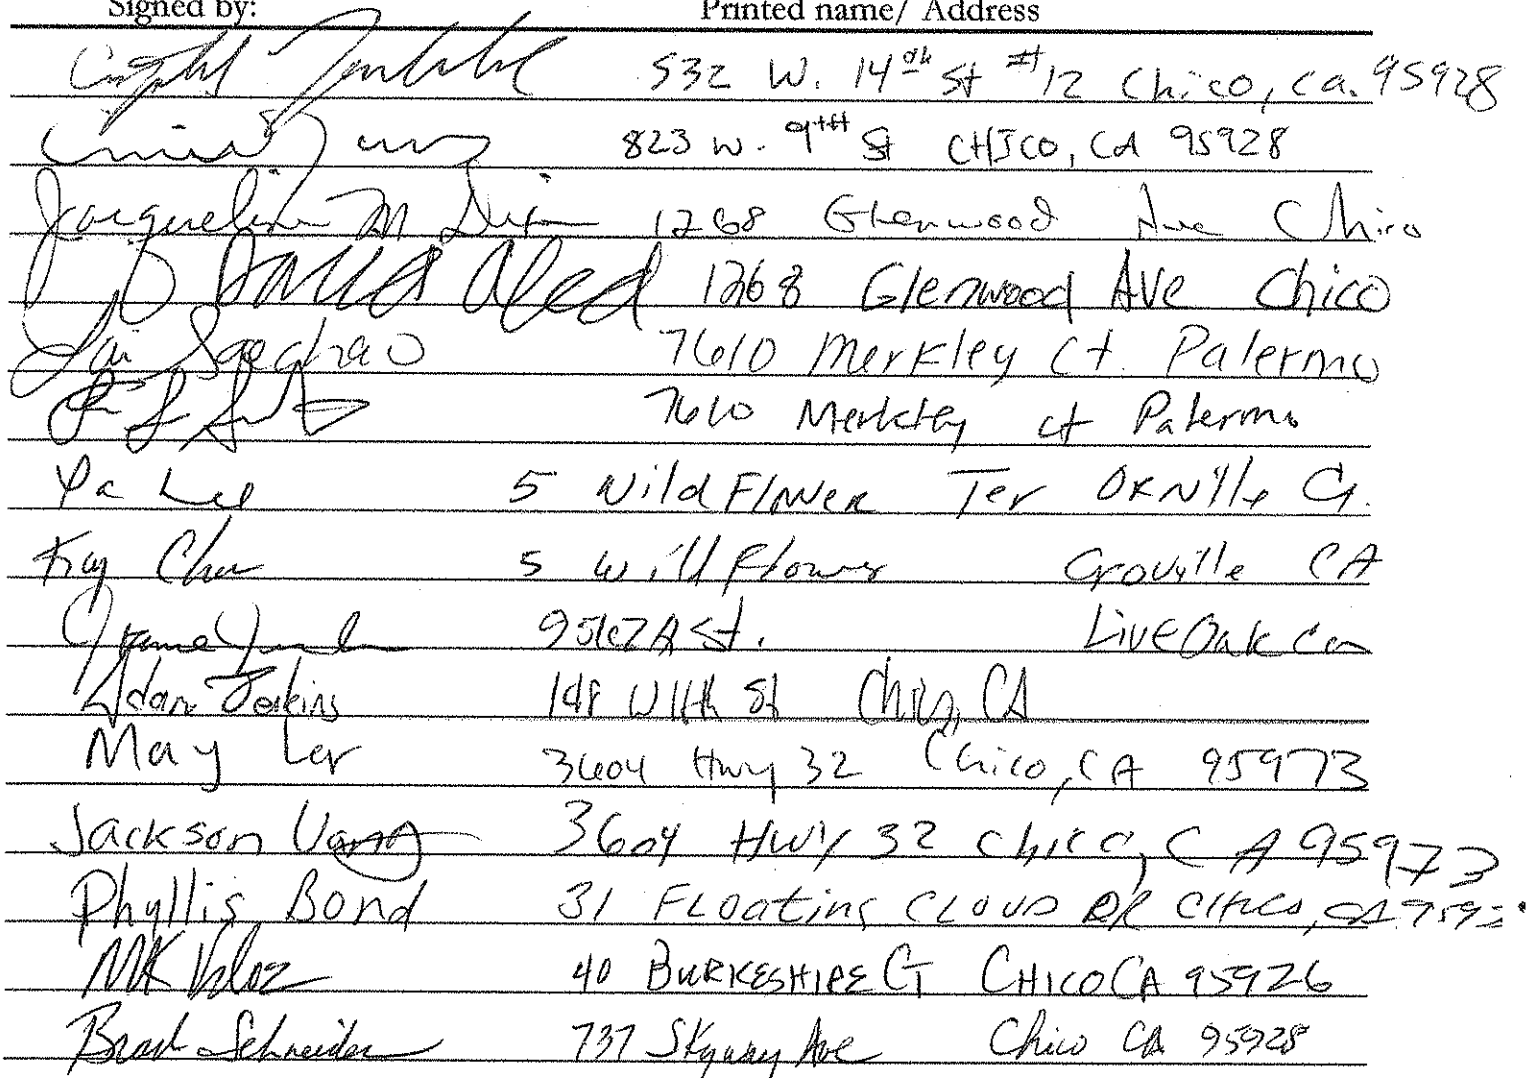 Signed by: Printed name/ Address
532 W. 14th St #12 Chico, Ca. 95928
823 W. 9th St CHICO, CA 95928
Jacqueline M 1268 Glenwood Ave Chico
David 1268 Glenwood Ave Chico
Saechao 7610 Merkley Ct. Palermo
7610 Merkley ct Palermo
Pa Lee 5 Wild Flower Ter CA.
5 Willflower Oroville CA
St. Live Oak Ca
Adam Jenkins W 11th St Chico, CA
May Ler 3604 Hwy 32 Chico, CA 95973
Jackson Vang 3604 HWY 32 Chico, CA 95973
Phyllis Bond 31 FLoating CLOUD DR CHICO, CA
MK 40 BURKESHIRE CT CHICO CA 95926
Brad Schneider 737 Skyway Ave Chico CA 95928